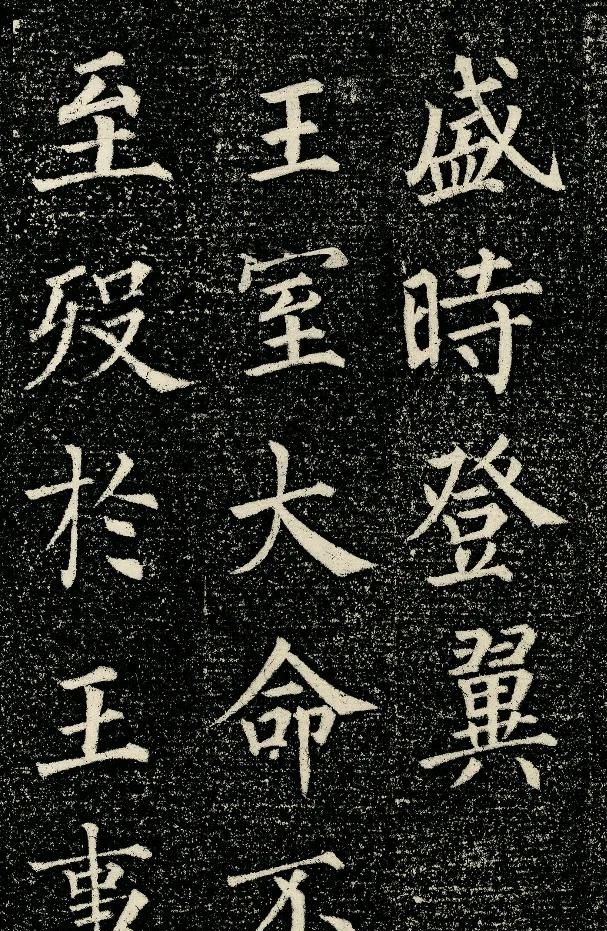 盛時登翼
王室大命不
至歿於王事